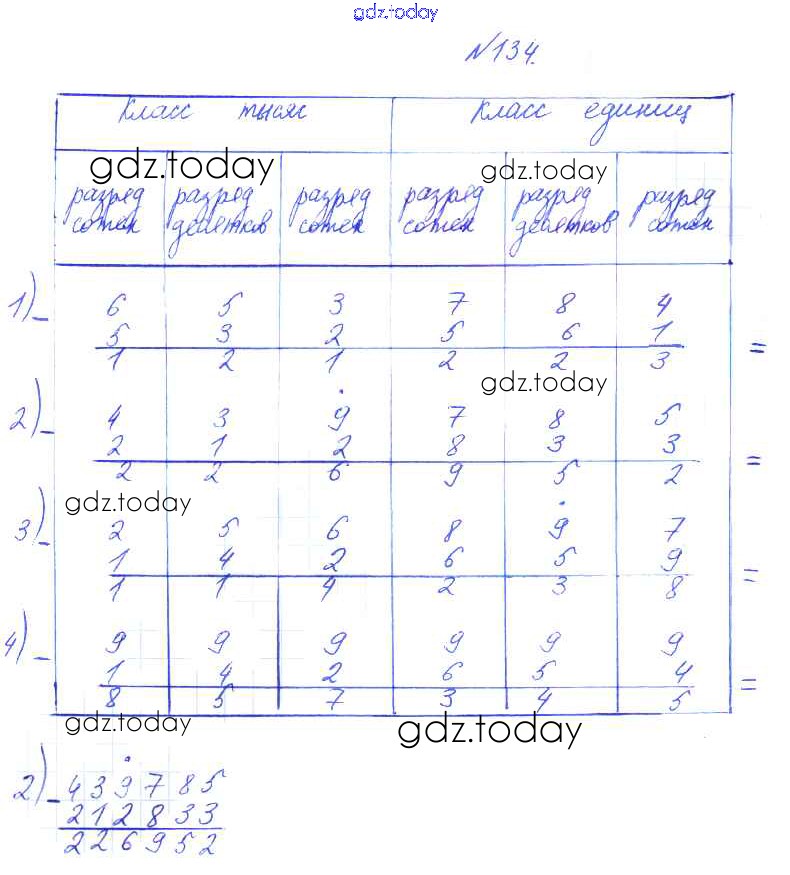 gdz.today
№134.
Класс тысяч Класс единиц
gdz.today gdz.today
разряд разряд разряд разряд разряд разряд
сотен десятков сотен сотен десятков сотен
1) 6 5 3 7 8 4
– 5 3 2 5 6 1 =
1 2 1 2 2 3
gdz.today
2) 4 3 9 7 8 5
– 2 1 2 8 3 3 =
2 2 6 9 5 2
gdz.today
3) 2 5 6 8 9 7
– 1 4 2 6 5 9 =
1 1 4 2 3 8
4) 9 9 9 9 9 9
– 1 4 2 6 5 4 =
8 5 7 3 4 5
gdz.today gdz.today
2) 439785
– 212833
226952